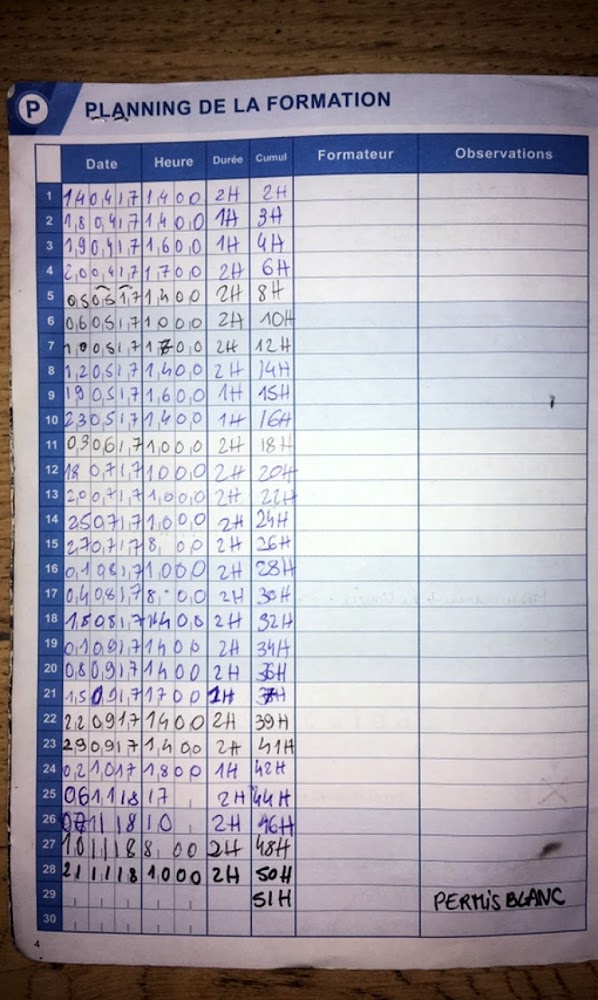 P PLANNING DE LA FORMATION
Date Heure Durée Cumul Formateur Observations
1 14 04 17 14 00 2H 2H
2 18 04 17 14 00 1H 3H
3 19 04 17 16 00 1H 4H
4 20 04 17 17 00 2H 6H
5 05 05 17 14 00 2H 8H
6 06 05 17 10 00 2H 10H
7 10 05 17 17 00 2H 12H
8 12 05 17 14 00 2H 14H
9 19 05 17 16 00 1H 15H
10 23 05 17 14 00 1H 16H
11 03 06 17 10 00 2H 18H
12 18 07 17 10 00 2H 20H
13 20 07 17 2H 22H
14 25 07 17 10 00 2H 24H
15 27 07 17 8 00 2H 26H
16 01 08 17 10 00 2H 28H
17 04 08 17 8 00 2H 30H
18 18 08 17 14 00 2H 32H
19 01 09 17 14 00 2H 34H
20 08 09 17 14 00 2H 36H
21 15 09 17 17 00 1H 37H
22 22 09 17 14 00 2H 39H
23 29 09 17 14 00 2H 41H
24 02 10 17 18 00 1H 42H
25 06 11 18 17 2H 44H
26 07 11 18 10 2H 46H
27 10 11 18 8 00 2H 48H
28 21 11 18 10 00 2H 50H
29 51H PERMIS BLANC
30
4